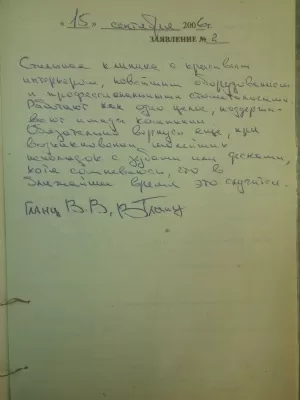 « 15 » сентября 2006 г.
ЗАЯВЛЕНИЕ № 2
Стильная клиника с красивым
интерьером, новейшим оборудованием
и профессиональными стоматологами.
Работают как одно целое, поддержи-
вают имидж компании.
Обязательно вернусь еще, при
возникновении малейших
неполадок с зубами или деснами,
хотя сомневаюсь, что в
ближайшее время это случится.
Гланц В.В,